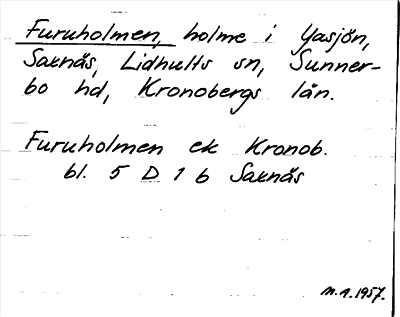 Furuholmen, holme i Yasjön,
Saxnäs, Lidhults sn, Sunner-
bo hd, Kronobergs län.
Furuholmen ek Kronob.
bl. 5 D 1 b Saxnäs
M.A. 1957.